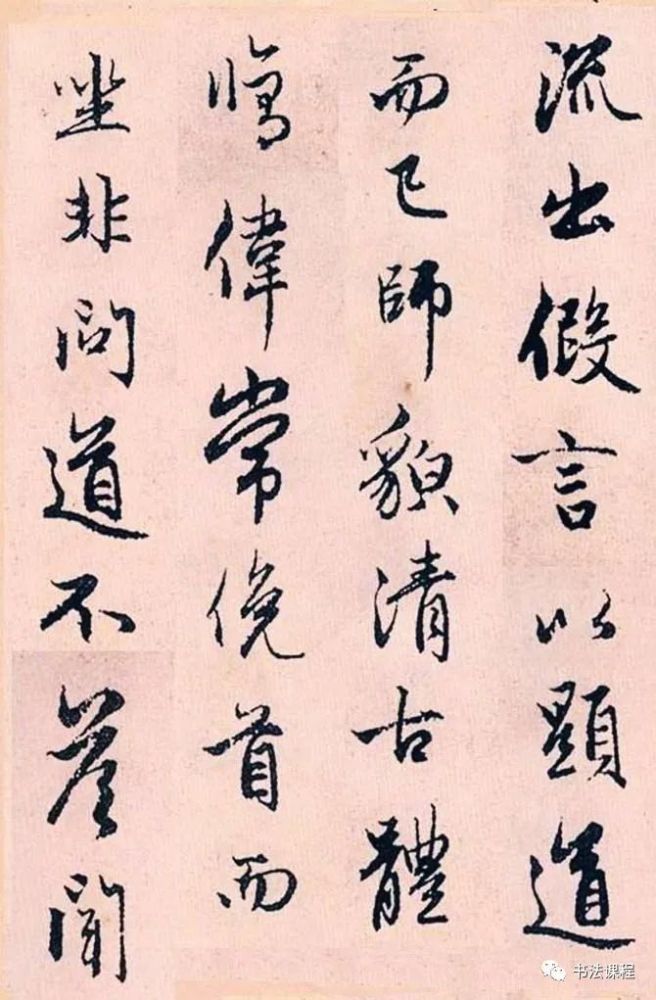 流出假言以顯道
而已師貌清古體
臞偉常俛首而
坐非問道不答聞
书法课程